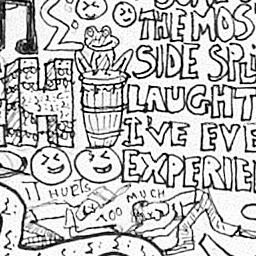 THE MOS
SIDE SPLI
LAUGHT
I'VE EVE
EXPERIE
IT HURTS
TOO MUCH